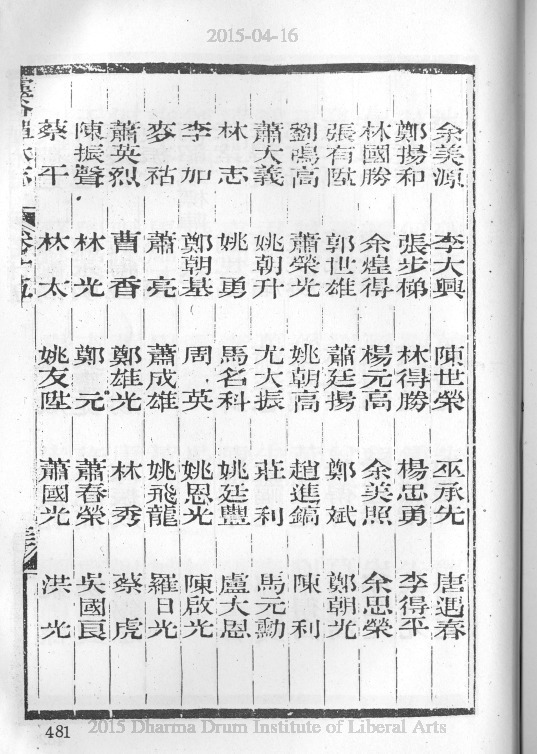 2015-04-16
余美源 李大興 陳世榮 巫承先 唐遇春
鄭揚和 張步梯 林得勝 楊忠勇 李得平
林國勝 余煌得 楊元高 余美照 余思榮
張有陞 郭世雄 蕭廷揚 鄭斌 鄭朝光
劉鳴高 蕭榮光 姚朝高 趙進鎬 陳利
蕭大義 姚朝升 尤大振 莊利 馬元勳
林志 姚勇 馬名科 姚廷豐 盧大恩
李加 鄭朝基 周英 姚恩光 陳啟光
麥祜 蕭亮 蕭成雄 姚飛龍 羅日光
蕭英烈 曹香 鄭雄光 林秀 蔡虎
陳振聲 林光 鄭元 蕭春榮 吳國良
蔡平 林太 姚友陞 蕭國光 洪光
481
2015 Dharma Drum Institute of Liberal Arts